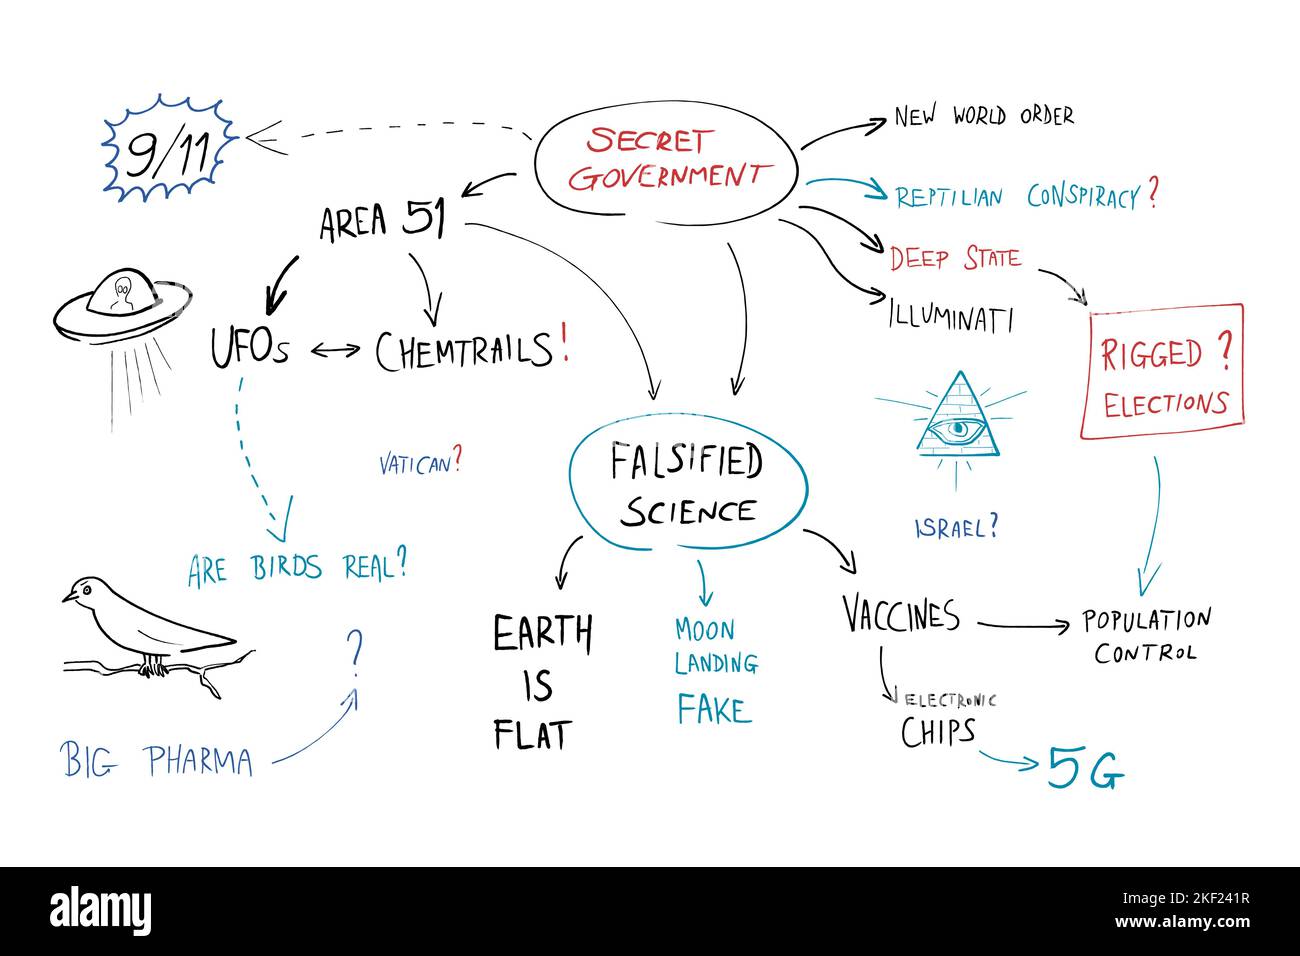 9/11
SECRET
GOVERNMENT
NEW WORLD ORDER
REPTILIAN CONSPIRACY?
DEEP STATE
ILLUMINATI
AREA 51
UFOs
CHEMTRAILS!
RIGGED ?
ELECTIONS
VATICAN?
FALSIFIED
SCIENCE
ISRAEL?
ARE BIRDS REAL?
?
BIG PHARMA
EARTH
IS
FLAT
MOON
LANDING
FAKE
VACCINES
POPULATION
CONTROL
ELECTRONIC
CHIPS
5G
a
alamy
a
alamy
alamy
Image ID: 2KF241R
www.alamy.com